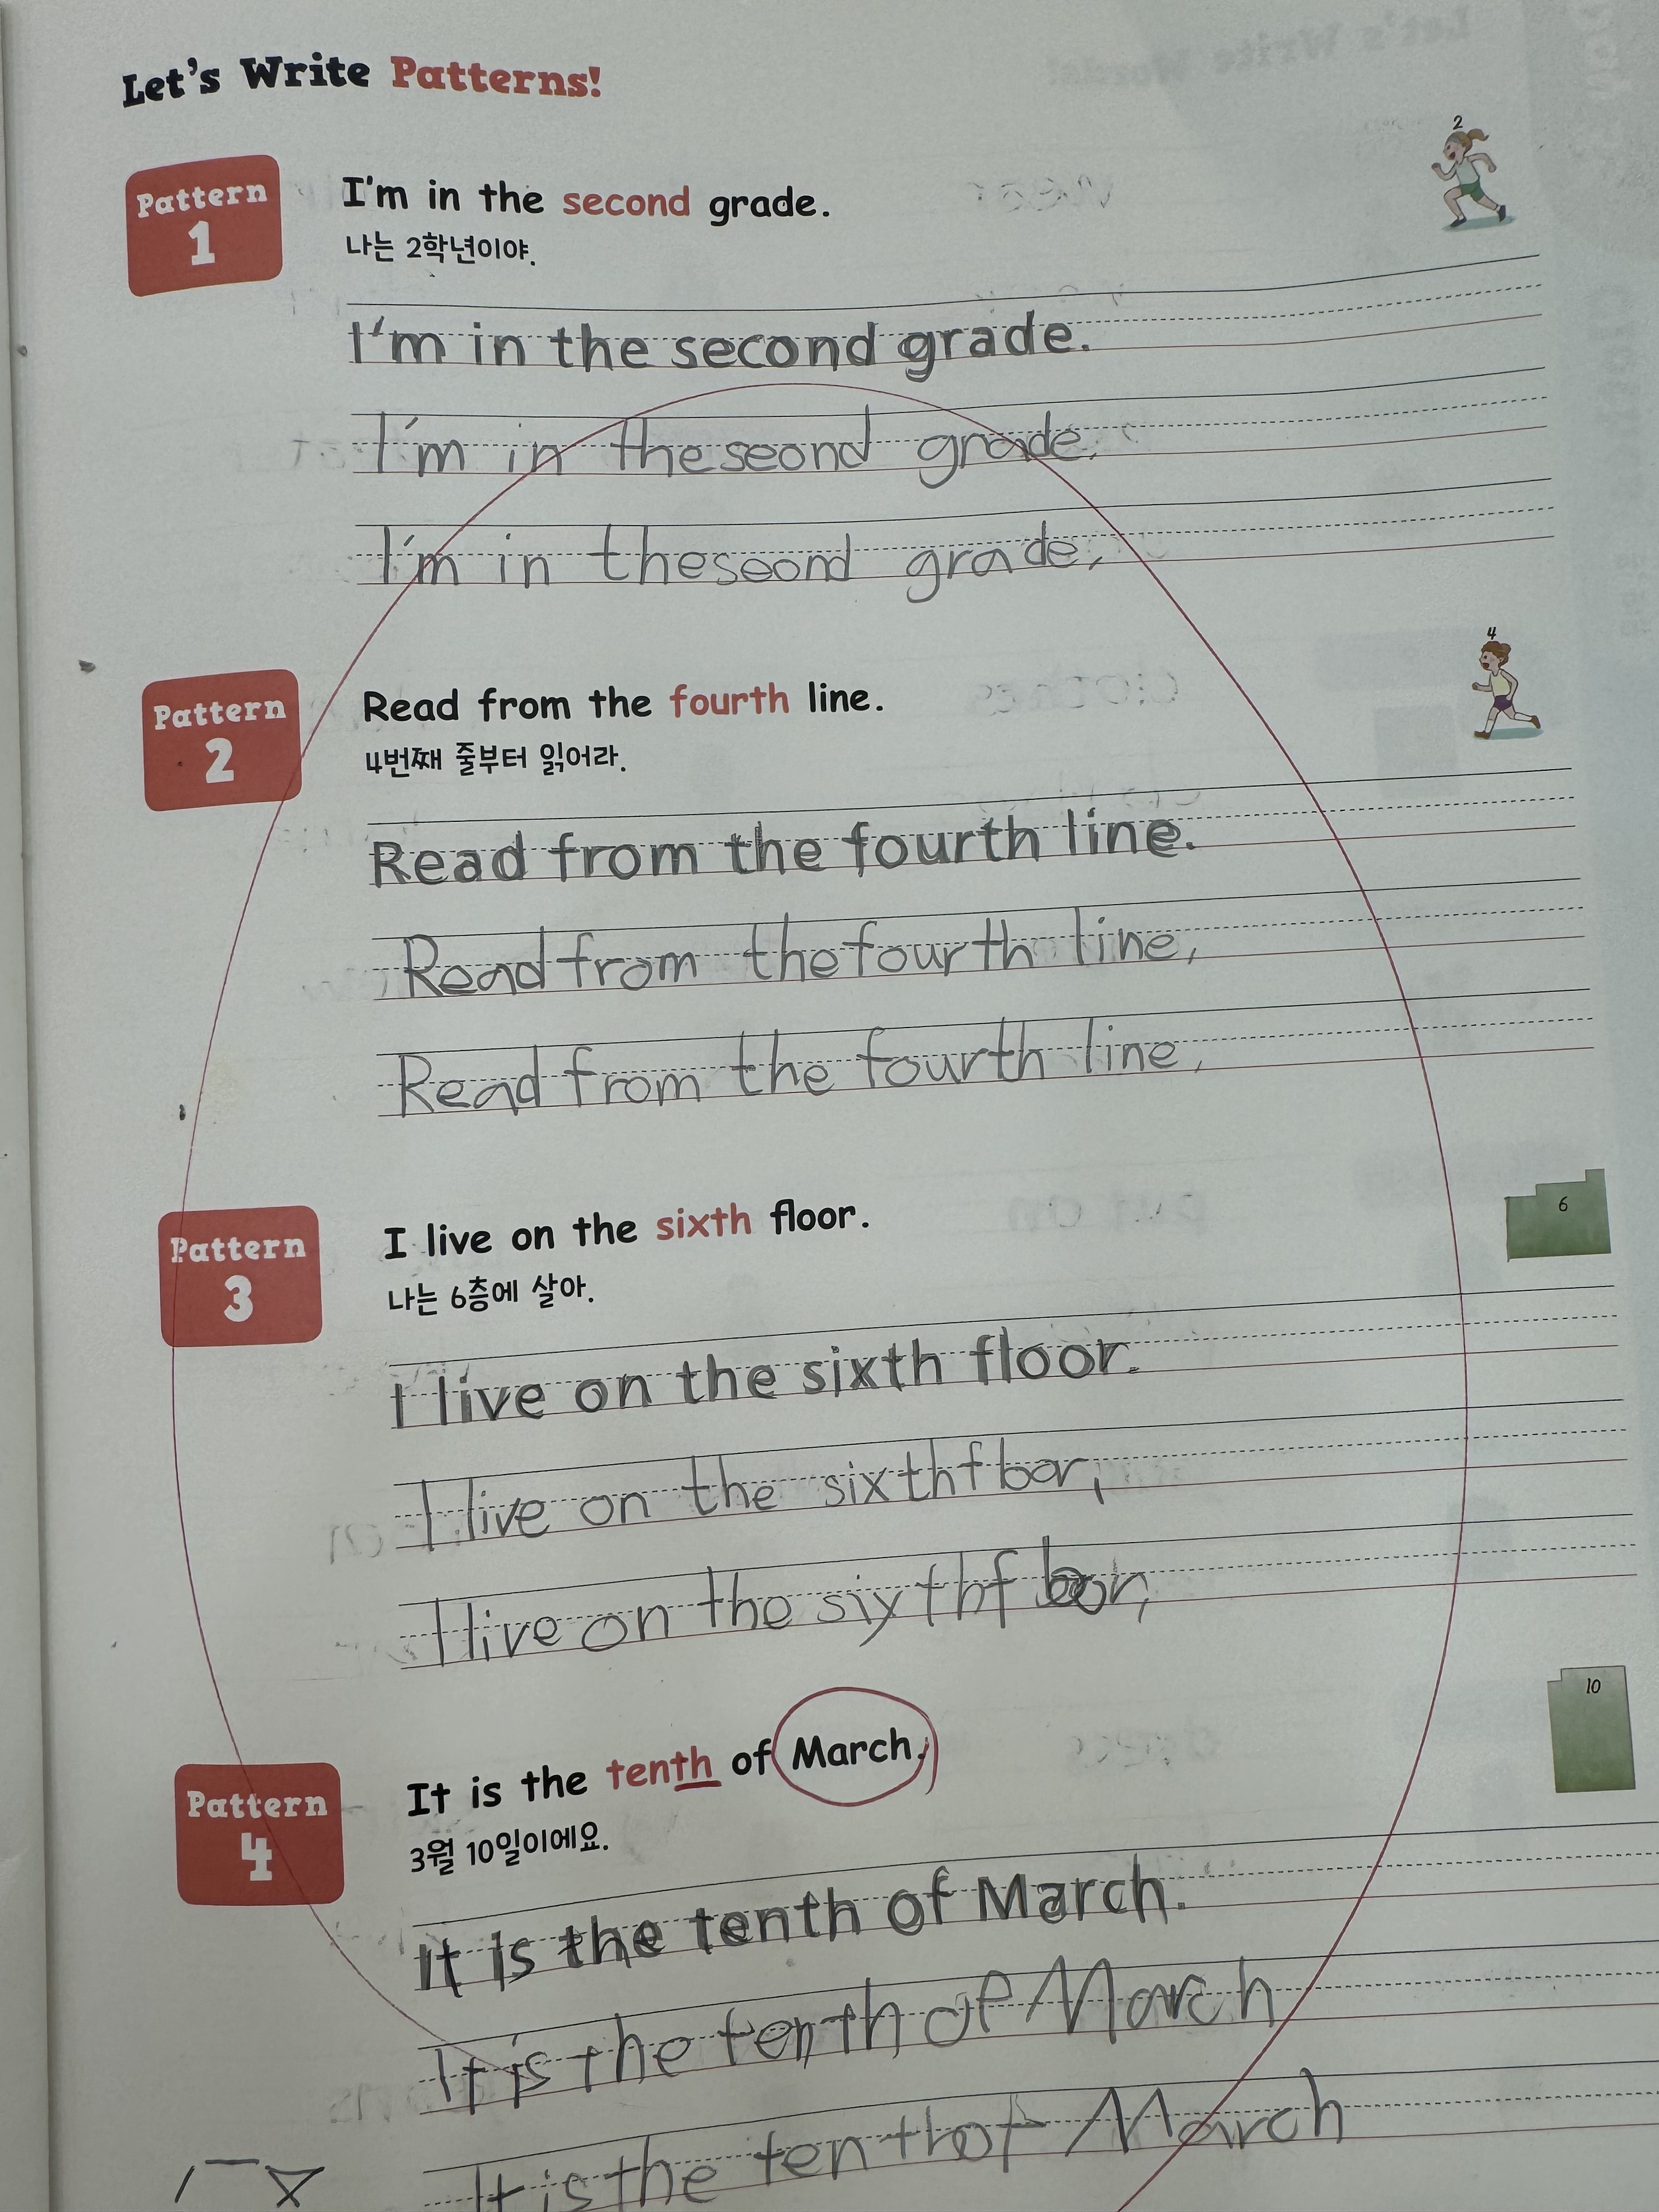 Let's Write Patterns!
2
Pattern 1
I'm in the second grade.
나는 2학년이야.
I'm in the second grade.
I'm in the seond grade.
I'm in the seond grade,
4
Pattern 2
Read from the fourth line.
4번째 줄부터 읽어라.
Read from the fourth line.
Read from the fourth line,
Read from the fourth line,
6
Pattern 3
I live on the sixth floor.
나는 6층에 살아.
I live on the sixth floor.
I live on the sixth floor,
I live on the siyth floor,
10
Pattern 4
It is the tenth of March.
3월 10일이에요.
It is the tenth of March.
It is the tenth of March
It is the tenth of March